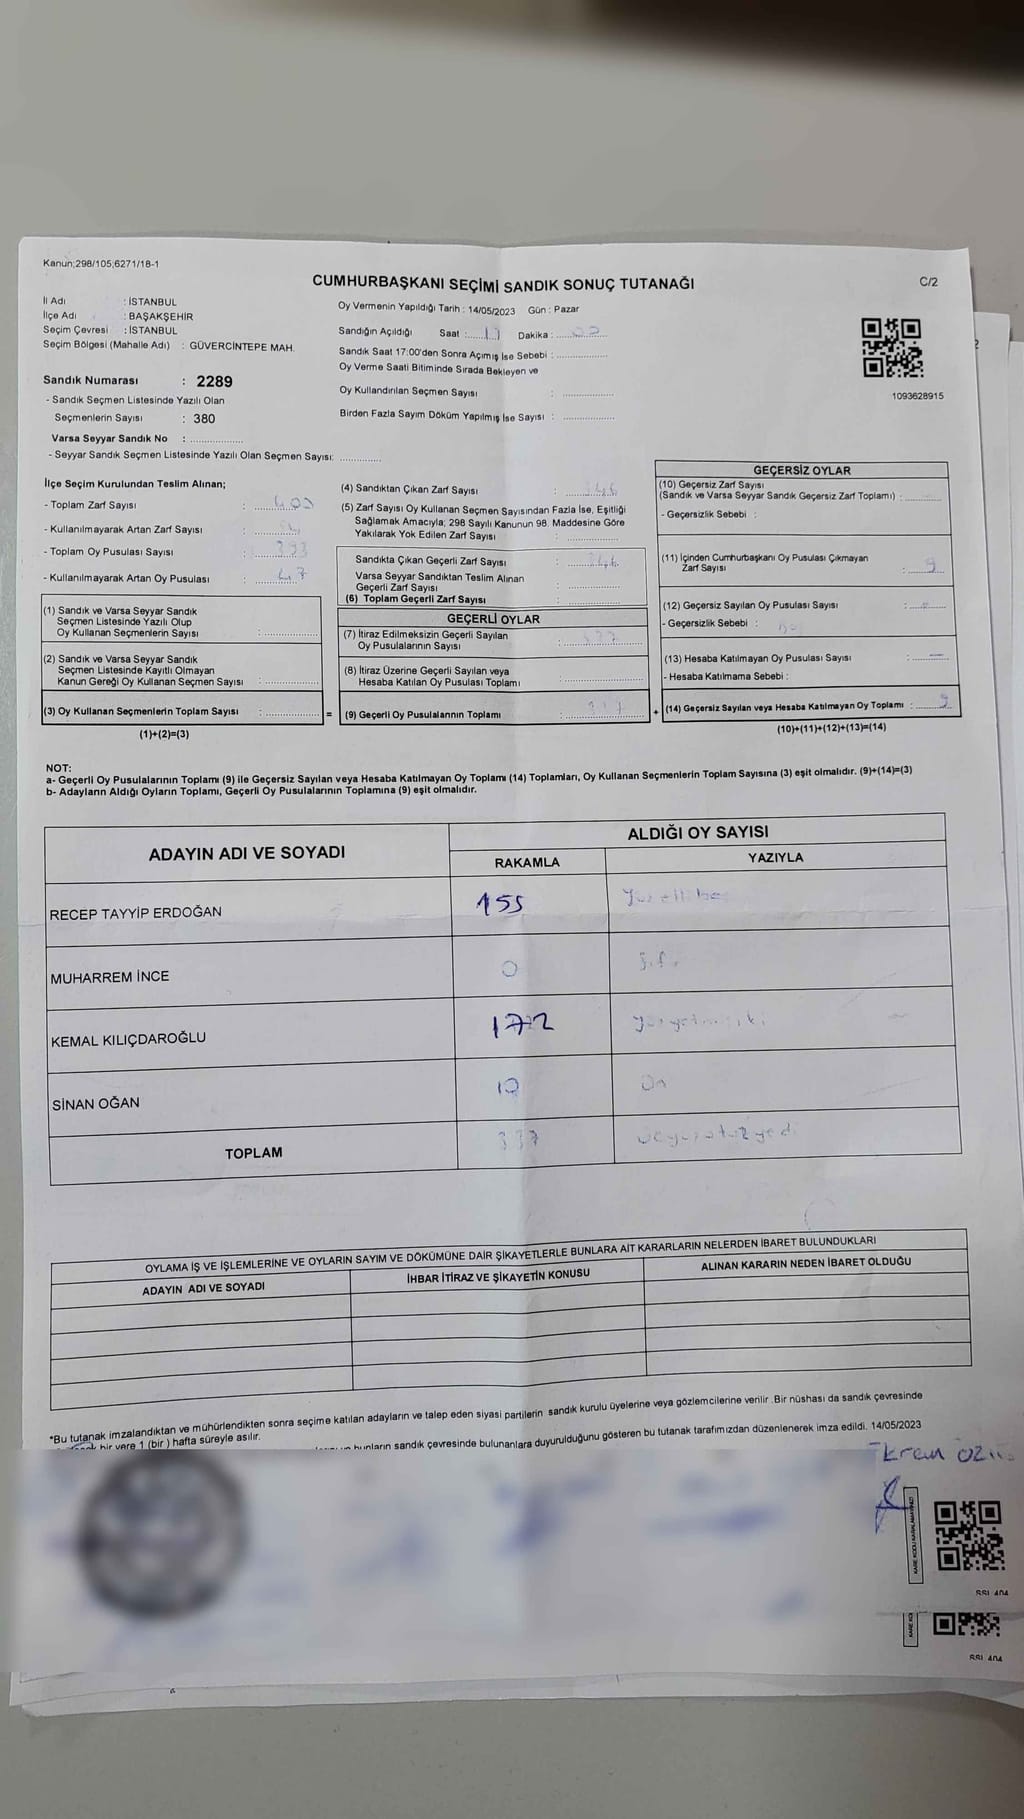 Kanun;298/105;6271/18-1
CUMHURBAŞKANI SEÇİMİ SANDIK SONUÇ TUTANAĞI
C/2
İl Adı : İSTANBUL
İlçe Adı : BAŞAKŞEHİR
Seçim Çevresi : İSTANBUL
Seçim Bölgesi (Mahalle Adı) : GÜVERCİNTEPE MAH.
Oy Vermenin Yapıldığı Tarih : 14/05/2023 Gün : Pazar
Sandığın Açıldığı Saat : 17 Dakika : 00
Sandık Saat 17:00'den Sonra Açımış İse Sebebi :
Oy Verme Saati Bitiminde Sırada Bekleyen ve
Oy Kullandırılan Seçmen Sayısı :
Birden Fazla Sayım Döküm Yapılmış İse Sayısı :
1093628915
Sandık Numarası : 2289
- Sandık Seçmen Listesinde Yazılı Olan
Seçmenlerin Sayısı : 380
Varsa Seyyar Sandık No :
- Seyyar Sandık Seçmen Listesinde Yazılı Olan Seçmen Sayısı:
İlçe Seçim Kurulundan Teslim Alınan;
- Toplam Zarf Sayısı : 400
- Kullanılmayarak Artan Zarf Sayısı :
- Toplam Oy Pusulası Sayısı : 393
- Kullanılmayarak Artan Oy Pusulası : 47
(1) Sandık ve Varsa Seyyar Sandık
Seçmen Listesinde Yazılı Olup
Oy Kullanan Seçmenlerin Sayısı :
(2) Sandık ve Varsa Seyyar Sandık
Seçmen Listesinde Kayıtlı Olmayan
Kanun Gereği Oy Kullanan Seçmen Sayısı :
(3) Oy Kullanan Seçmenlerin Toplam Sayısı :
(1)+(2)=(3)
=
(4) Sandıktan Çıkan Zarf Sayısı : 346
(5) Zarf Sayısı Oy Kullanan Seçmen Sayısından Fazla İse, Eşitliği
Sağlamak Amacıyla; 298 Sayılı Kanunun 98. Maddesine Göre
Yakılarak Yok Edilen Zarf Sayısı :
Sandıkta Çıkan Geçerli Zarf Sayısı : 346
Varsa Seyyar Sandıktan Teslim Alınan
Geçerli Zarf Sayısı :
(6) Toplam Geçerli Zarf Sayısı :
GEÇERLİ OYLAR
(7) İtiraz Edilmeksizin Geçerli Sayılan
Oy Pusulalarının Sayısı : 337
(8) İtiraz Üzerine Geçerli Sayılan veya
Hesaba Katılan Oy Pusulası Toplamı :
(9) Geçerli Oy Pusulalarının Toplamı : 337
+
GEÇERSİZ OYLAR
(10) Geçersiz Zarf Sayısı
(Sandık ve Varsa Seyyar Sandık Geçersiz Zarf Toplamı) :
- Geçersizlik Sebebi :
(11) İçinden Cumhurbaşkanı Oy Pusulası Çıkmayan
Zarf Sayısı : 9
(12) Geçersiz Sayılan Oy Pusulası Sayısı :
- Geçersizlik Sebebi :
(13) Hesaba Katılmayan Oy Pusulası Sayısı : —
- Hesaba Katılmama Sebebi :
(14) Geçersiz Sayılan veya Hesaba Katılmayan Oy Toplamı : 9
(10)+(11)+(12)+(13)=(14)
NOT:
a- Geçerli Oy Pusulalarının Toplamı (9) ile Geçersiz Sayılan veya Hesaba Katılmayan Oy Toplamı (14) Toplamları, Oy Kullanan Seçmenlerin Toplam Sayısına (3) eşit olmalıdır. (9)+(14)=(3)
b- Adayların Aldığı Oyların Toplamı, Geçerli Oy Pusulalarının Toplamına (9) eşit olmalıdır.
ADAYIN ADI VE SOYADI
ALDIĞI OY SAYISI
RAKAMLA YAZIYLA
RECEP TAYYİP ERDOĞAN 155
MUHARREM İNCE 0
KEMAL KILIÇDAROĞLU 172 yüzyetmişiki
SİNAN OĞAN 10 On
TOPLAM 337 üçyüzotuzyedi
OYLAMA İŞ VE İŞLEMLERİNE VE OYLARIN SAYIM VE DÖKÜMÜNE DAİR ŞİKAYETLERLE BUNLARA AİT KARARLARIN NELERDEN İBARET BULUNDUKLARI
ADAYIN ADI VE SOYADI İHBAR İTİRAZ VE ŞİKAYETİN KONUSU ALINAN KARARIN NEDEN İBARET OLDUĞU
*Bu tutanak imzalandıktan ve mühürlendikten sonra seçime katılan adayların ve talep eden siyasi partilerin sandık kurulu üyelerine veya gözlemcilerine verilir .Bir nüshası da sandık çevresinde
bir yere 1 (bir ) hafta süreyle asılır.
bunların sandık çevresinde bulunanlara duyurulduğunu gösteren bu tutanak tarafımızdan düzenlenerek imza edildi. 14/05/2023
Ekrem
SSI 404
SSI 404